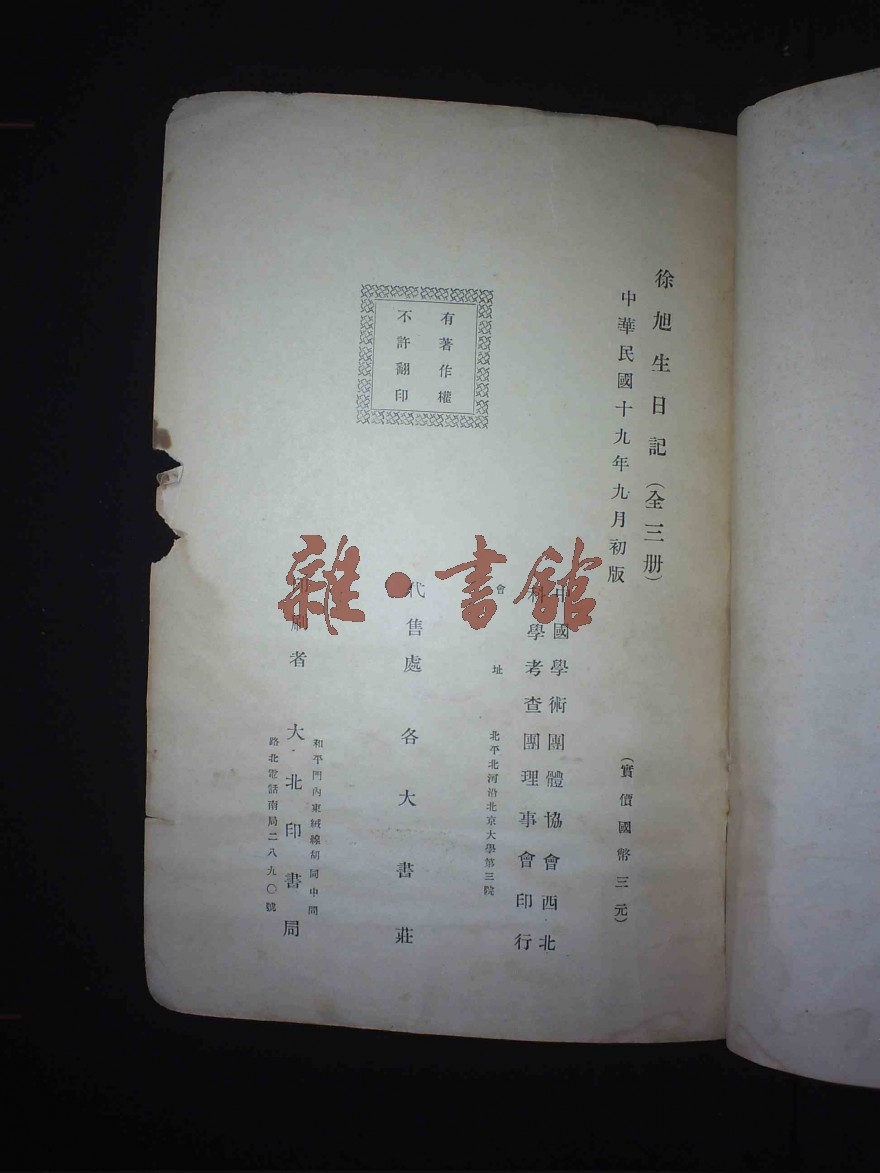 徐旭生日記（全三册）
中華民國十九年九月初版
（實價國幣三元）
中國學術團體協會西北
科學考查團理事會印行
會址
北平北河沿北京大學第三院
有著作權
不許翻印
代售處 各大書莊
和平門內東絨線胡同中間
印刷者 大北印書局
路北電話南局二八九〇號
雜·書館